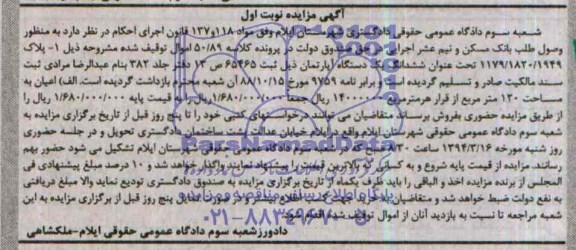 آگهی مزایده نوبت اول
شعبه سوم دادگاه عمومی حقوقی دادگستری شهرستان ایلام وفق مواد ۱۱۸و۱۳۷ قانون اجرای احکام در نظر دارد به منظور
وصول طلب بانک مسکن و نیم عشر اجرایی در حق صندوق دولت در پرونده کلاسه ۵۰/۸۹ اموال توقیف شده مشروحه ذیل ۱- پلاک
۱۱۷۹/۱۸۲۰/۱۹۴۹ تحت عنوان ششدانگ یک دستگاه آپارتمان ذیل ثبت ۶۵۴۶۵ ص ۱۳ دفتر جلد ۳۸۲ بنام عبدالرضا مرادی ثبت
سند مالکیت صادر و تسلیم گردیده است و برابر نامه ۹۷۵۹ مورخ ۸۸/۱۰/۱۵ آن شعبه محترم بازداشت گردیده است. الف) اعیان به
مساحت ۱۲۰ متر مربع از قرار هرمترمربع ریال جمعا ۱/۶۸۰/۰۰۰/۰۰۰ریال را به قیمت پایه ۱/۶۸۰/۰۰۰/۰۰۰ ریال را
از طریق مزایده حضوری بفروش برساند متقاضیان می توانند درخواستهای کتبی خود را تا پنج روز قبل از تاریخ برگزاری مزایده به
شعبه سوم دادگاه عمومی حقوقی شهرستان ایلام واقع در ایلام خیابان عدالت پشت ساختمان دادگستری تحویل و در جلسه حضوری
روز شنبه مورخه ۱۳۹۴/۳/۱۶ ساعت سوم دادگاه عمومی حقوقی شهرستان ایلام تشکیل می شود حضور بهم
رسانند. مزایده از قیمت پایه شروع و به کسانی که بالاترین قیمت را پیشنهاد نمایند واگذار خواهد شد و ۱۰ درصد مبلغ پیشنهادی فی
المجلس از برنده مزایده اخذ و الباقی را باید ظرف یکماه از تاریخ برگزاری مزایده به صندوق دادگستری تودیع نماید والا مبلغ دریافتی
به نفع دولت ضبط خواهد شد و متقاضیان جهت کسب اطلاع بیشتر و در صورت پنج روز قبل از برگزاری مزایده به این
شعبه مراجعه تا نسبت به بازدید آنان از اموال توقیف شده اقدام شود
دادورزشعبه سوم دادگاه عمومی حقوقی ایلام-ملکشاهی
ParsNamadData
۰۲۱-۸۸۳۴۹۶۷۰